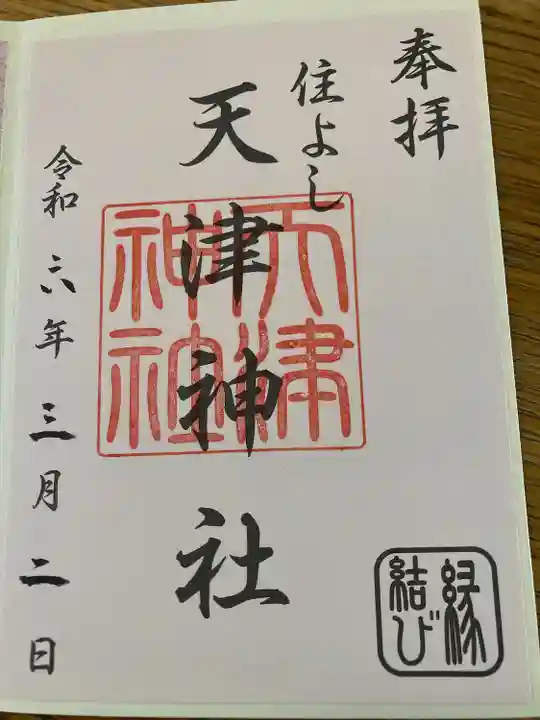 奉拝
住よし
天津神社
天津神社
令和六年三月二日
縁結び